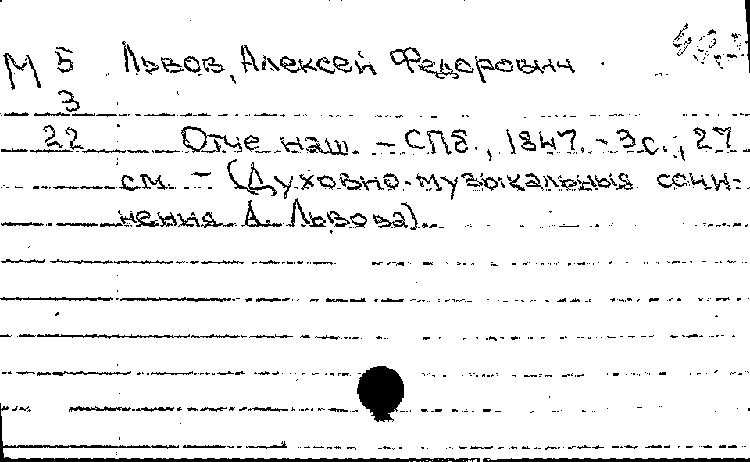 М 5 Львов, Алексей Федорович
3
22 Отче наш. – СПб., 1847. – 3 с.; 27
см. – (Духовно-музыкальныя сочи-
нения А. Львова).